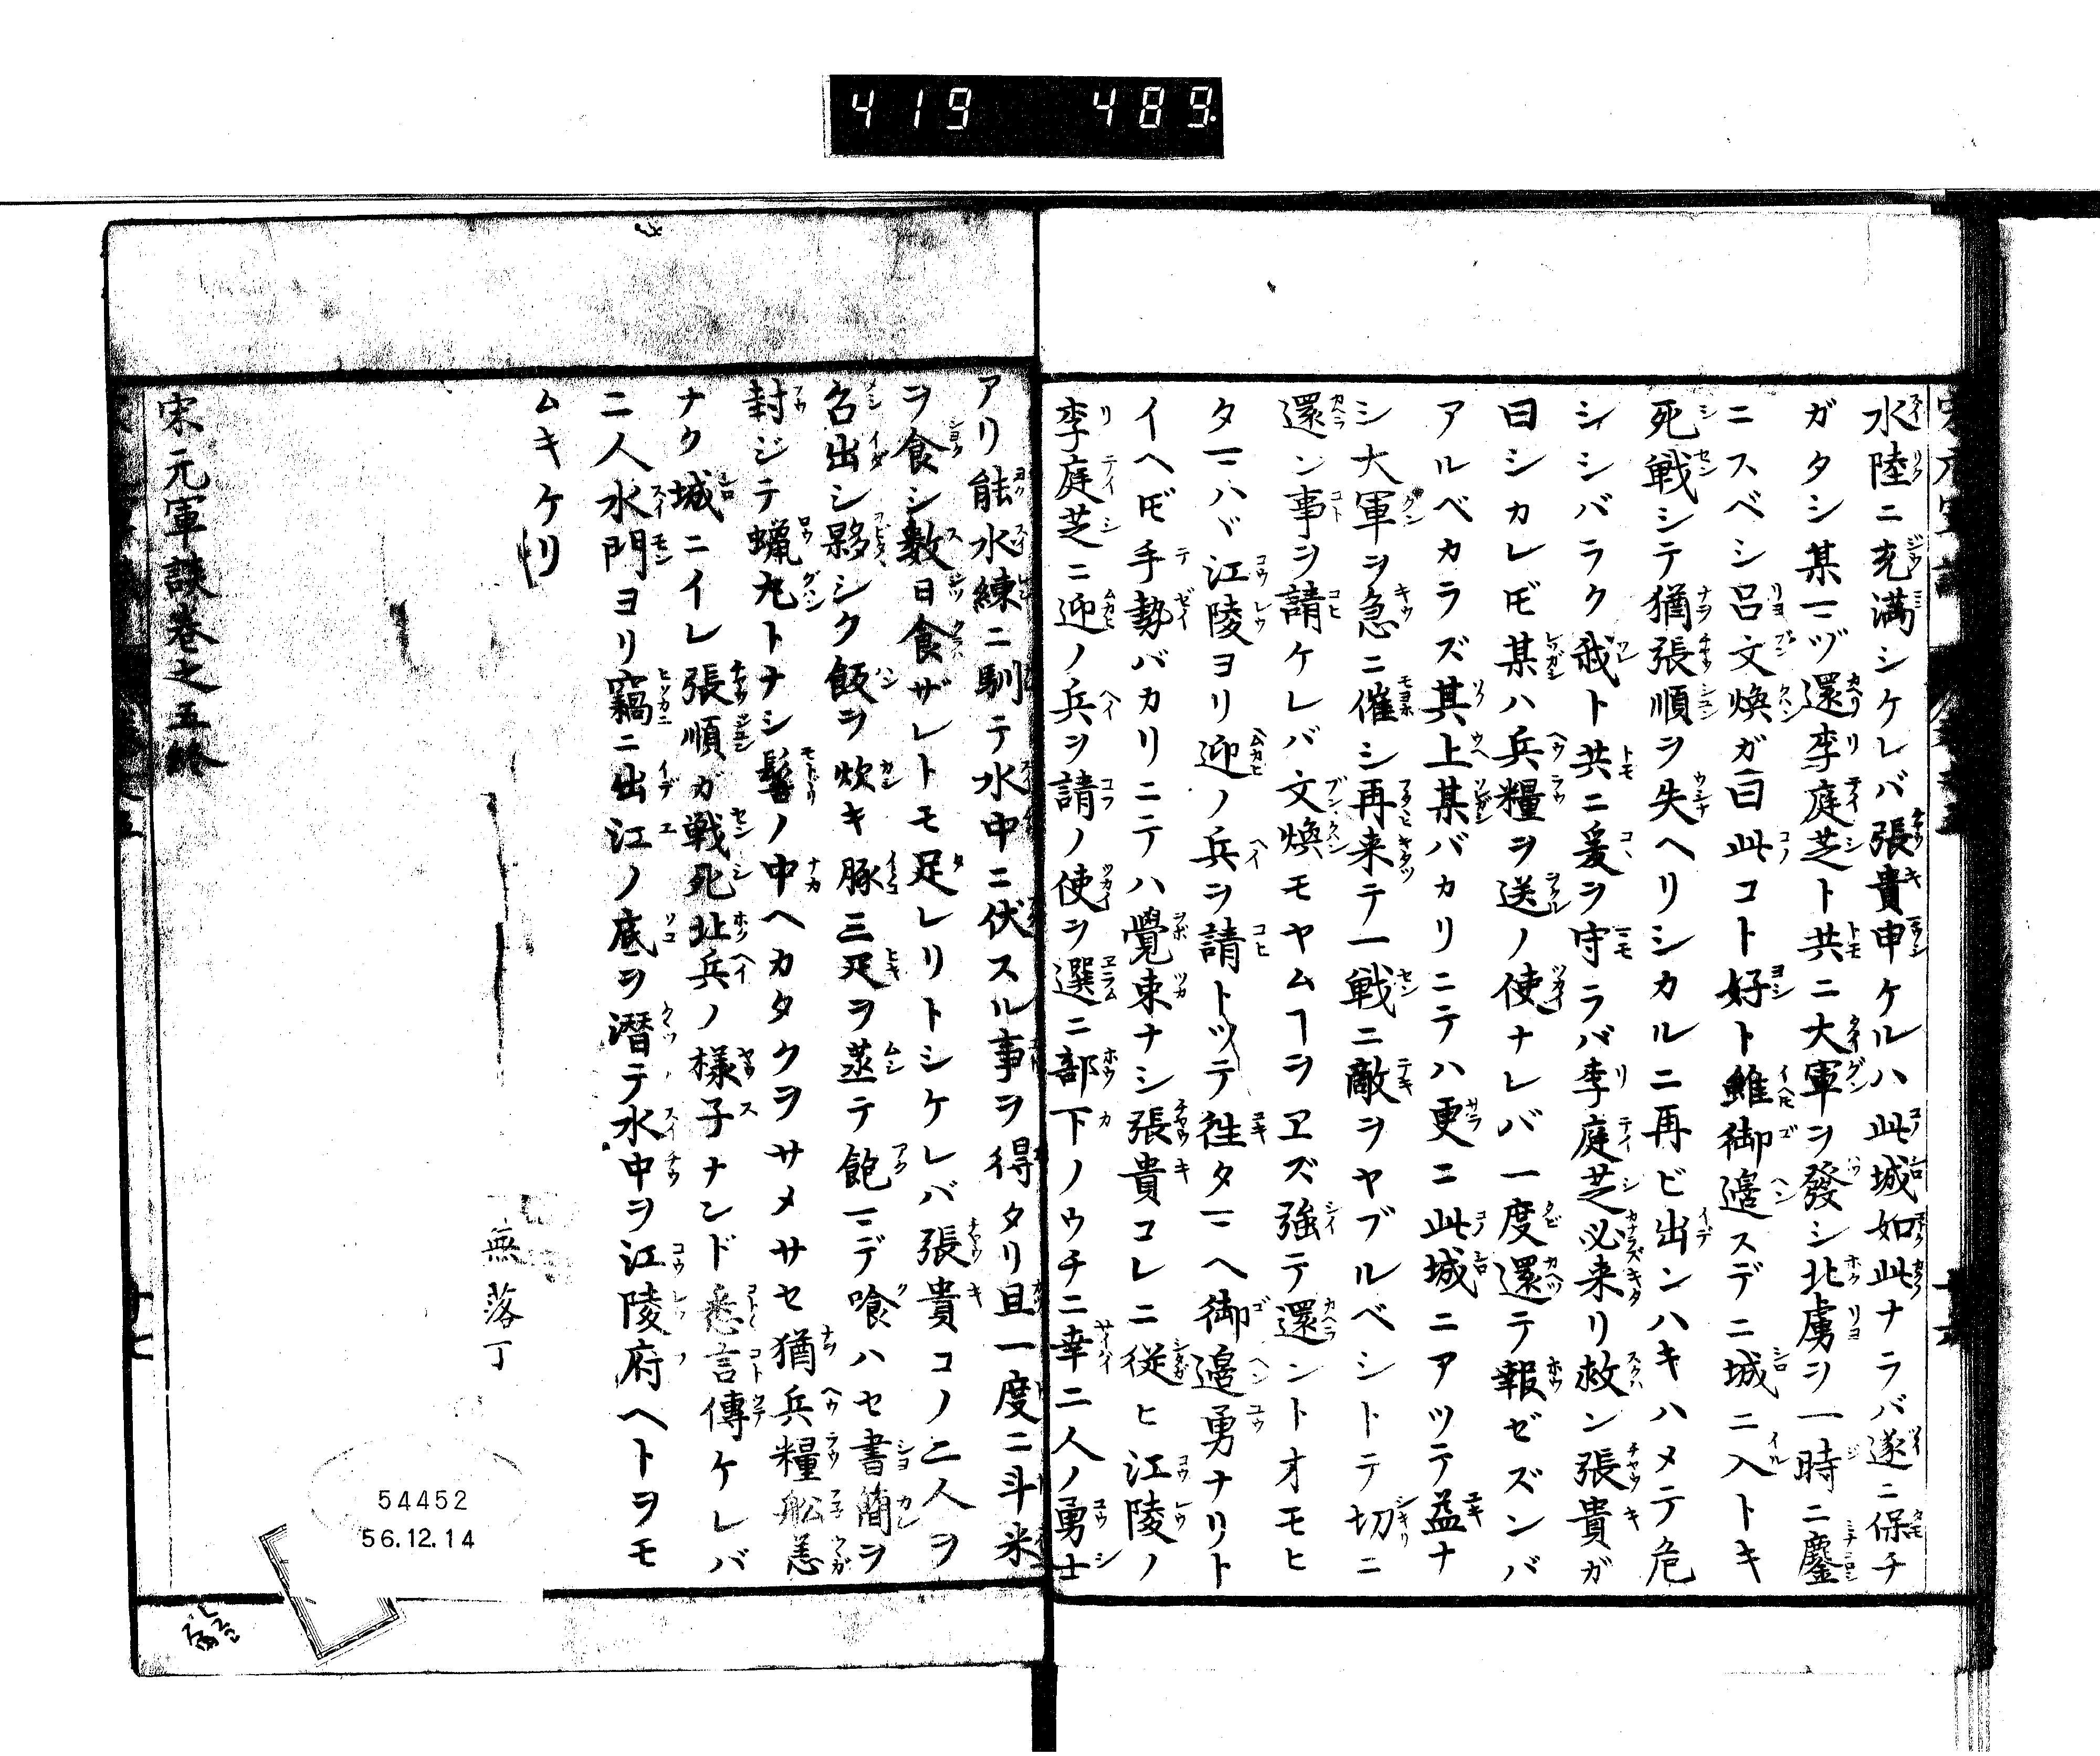 419 489
水陸ニ充満シケレバ張貴申ケルハ此城如此ナラバ遂ニ保チ
ガタシ某マヅ還李庭芝ト共ニ大軍ヲ發シ北虜ヲ一時ニ鏖
ニスベシ呂文煥ガ曰此コト好ト雖御邉スデニ城ニ入トキ
死戦シテ猶張順ヲ失ヘリシカルニ再ビ出ンハキハメテ危
シシバラク我ト共ニ爰ヲ守ラバ李庭芝必来リ救ン張貴ガ
曰シカレ𪜈某ハ兵糧ヲ送ノ使ナレバ一度還テ報ゼズンバ
アルベカラズ其上某バカリニテハ更ニ此城ニアツテ益ナ
シ大軍ヲ急ニ催シ再来テ一戦ニ敵ヲヤブルベシトテ切ニ
還ン事ヲ請ケレバ文煥モヤムヿヲヱズ強テ還ントオモヒ
タマハヾ江陵ヨリ迎ノ兵ヲ請トツテ徃タマヘ御邉勇ナリト
イヘ𪜈手勢バカリニテハ覺束ナシ張貴コレニ従ヒ江陵ノ
李庭芝ニ迎ノ兵ヲ請ノ使ヲ選ニ部下ノウチニ幸二人ノ勇士
アリ能水練ニ馴テ水中ニ伏スル事ヲ得タリ且一度ニ斗米
ヲ食シ數日食ザレトモ足レリトシケレバ張貴コノ二人ヲ
召出シ夥シク飯ヲ炊キ豚三疋ヲ蒸テ飽マデ喰ハセ書簡ヲ
封ジテ蠟丸トナシ髻ノ中ヘカタクヲサメサセ猶兵糧舩恙
ナク城ニイレ張順ガ戦死北兵ノ様子ナンド悉言傳ケレバ
二人水門ヨリ竊ニ出江ノ底ヲ潜テ水中ヲ江陵府ヘトヲモ
ムキケリ
無落丁
宋元軍談巻之五終
54452
56.12.14